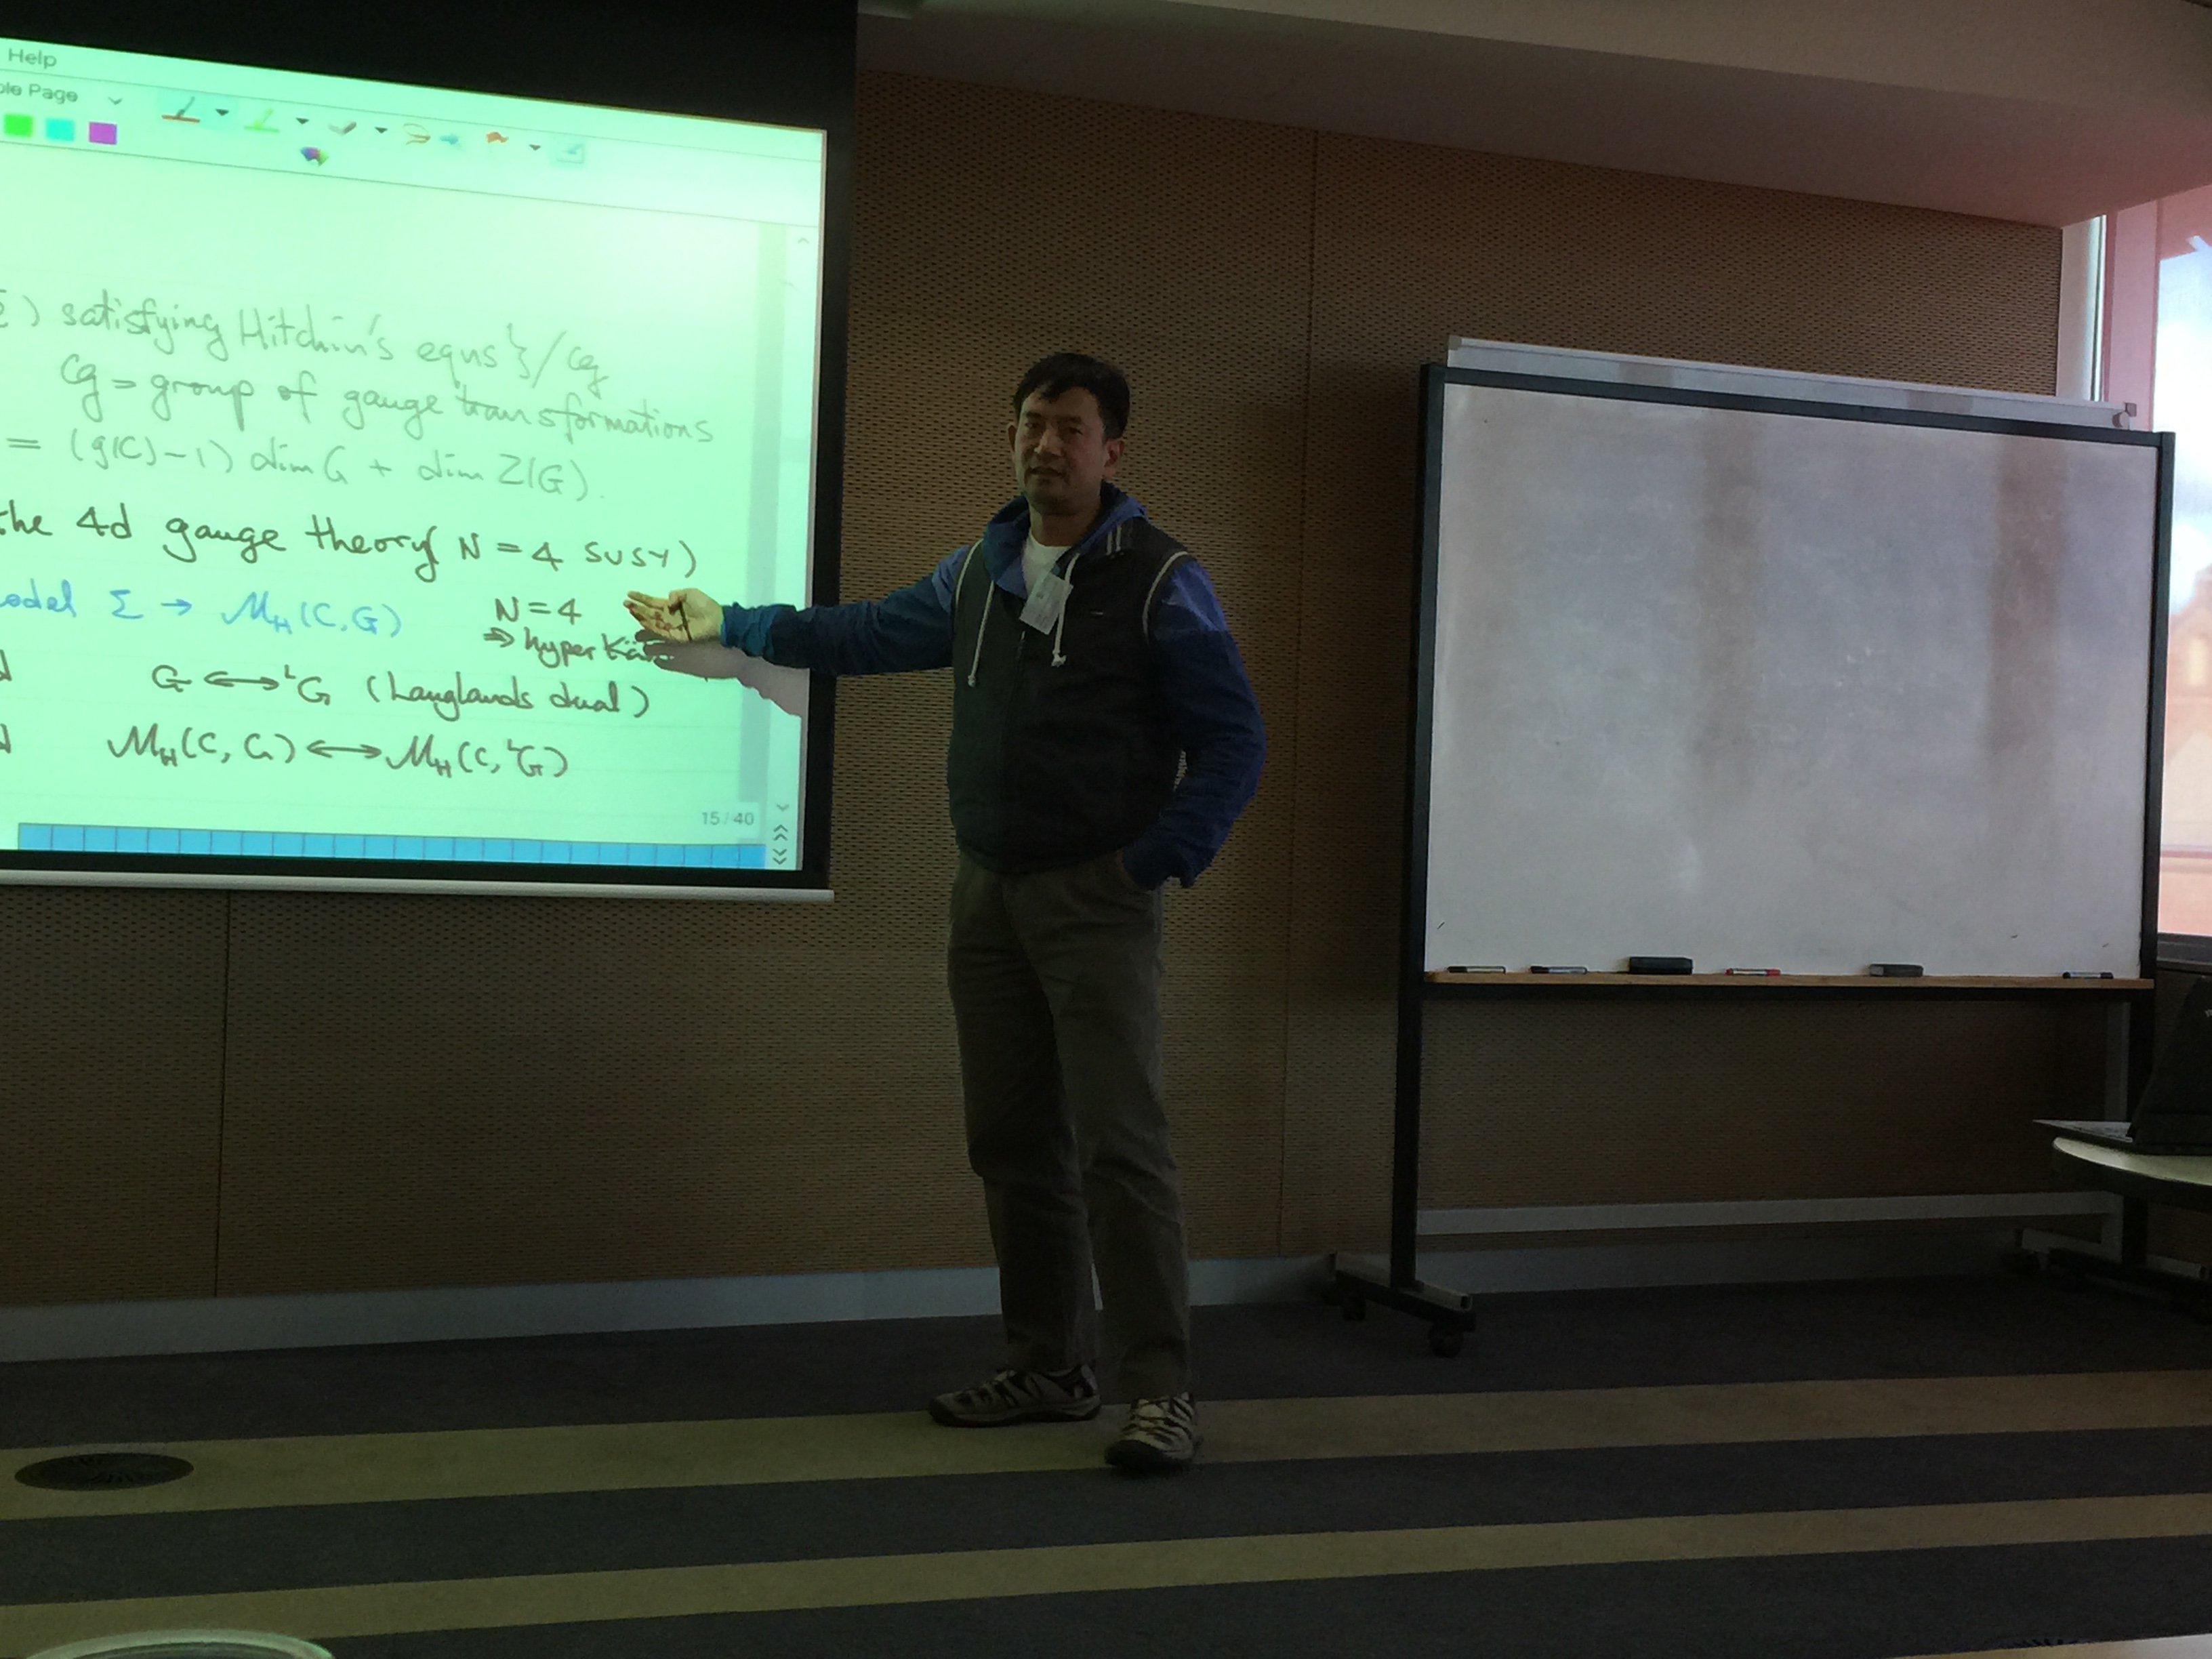 Help
ple Page
) satisfying Hitchin's eqns}/𝒢
𝒢 = group of gauge transformations
= (g(C)-1) dim G + dim Z(G).
the 4d gauge theory (N = 4 SUSY)
odel Σ → M_H(C,G)
N=4
⇒ hyper Kä
G ↔ ᴸG (Langlands dual)
M_H(C, G) ↔ M_H(C, ᴸG)
15 / 40